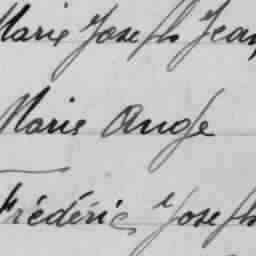 Marie Joseph Jean
Marie Ange
Frédéric Joseph